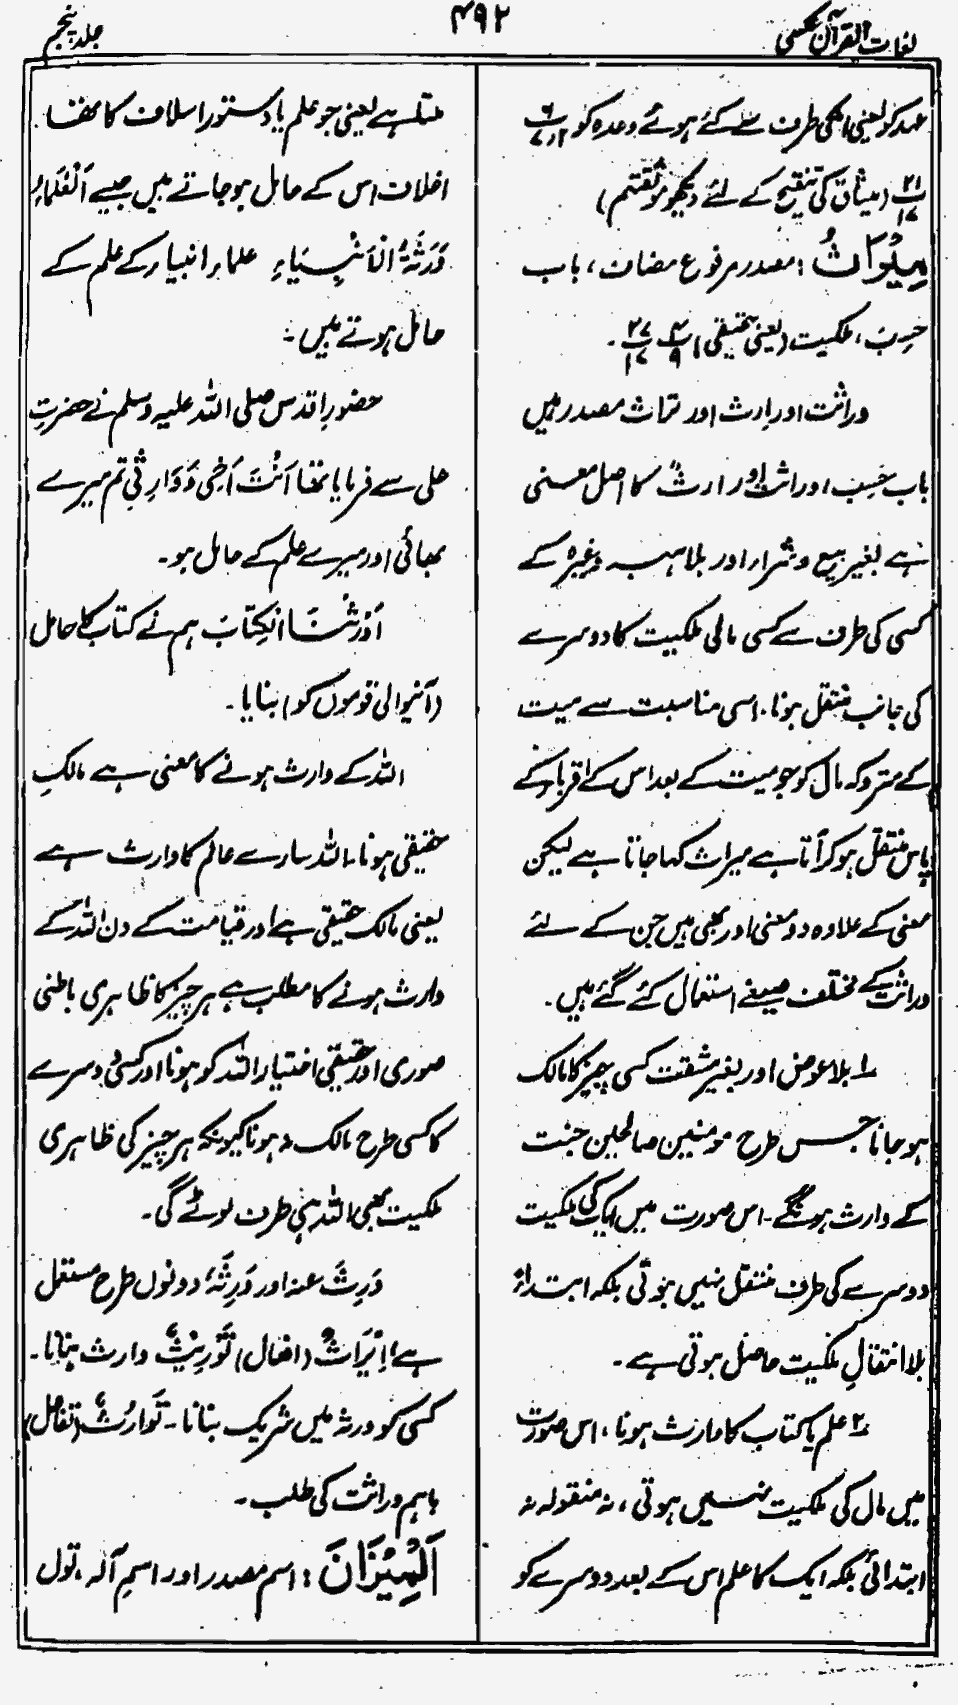 لغات القرآن عکسی
۴۹۲
جلد پنجم
عہد کو یعنی انکی طرف سے کئے ہوئے وعدہ کو
(میثاق کی تنقیح کے لئے دیکھو مَوْثِقَتم)
مِیْرَاثُ : مصدر مرفوع مضاف، باب
حَسِبَ، ملکیت (یعنی حقیقی) پ ۴/۹ پ ۲۷/۱۷ ۔
وراثت اور اِرث اور تراث مصدر ہیں
باب حَسِبَ اور اثٌ اور ارثٌ کا اصل معنی
ہے بغیر بیع و شرار اور بلا ہبہ وغیرہ کے
کسی کی طرف سے کسی مالی ملکیت کا دوسرے
کی جانب منتقل ہونا۔ اسی مناسبت سے میت
کے متروکہ مال کو جو میت کے بعد اس کے اقرباء کے
پاس منتقل ہو کر آتا ہے میراث کہا جاتا ہے لیکن
معنی کے علاوہ دو معنی اور بھی ہیں جن کے لئے
وراثت کے مختلف صیغے استعمال کئے گئے ہیں۔
۱؎ بلا عوض اور بغیر مشقت کسی چیز کا مالک
ہو جانا جس طرح مومنین صالحین جنت
کے وارث ہونگے۔ اس صورت میں ایک کی ملکیت
دوسرے کی طرف منتقل نہیں ہوتی بلکہ ابتداءً
بلا انتقالِ ملکیت حاصل ہوتی ہے۔
۲؎ علم یا کتاب کا وارث ہونا، اس صورت
میں مال کی ملکیت نہیں ہوتی، نہ منقولہ نہ
ابتدائی بلکہ ایک کا علم اس کے بعد دوسرے کو
ملتا ہے یعنی جو علم یا دستور اسلاف کا تھا
اخلاف اس کے حامل ہو جاتے ہیں جیسے اَلْعُلَمَاءُ
وَرَثَۃُ الْاَنْبِیَاءِ علماء انبیاء کے علم کے
حامل ہوتے ہیں۔
حضورِ اقدس صلی اللہ علیہ وسلم نے حضرتِ
علی سے فرمایا تھا اَنْتَ اَخِی وَوَارِثِی تم میرے
بھائی اور میرے علم کے حامل ہو۔
اَوْرَثْنَا الْکِتَابَ ہم نے کتاب کا حامل
(آنیوالی قوموں کو) بنایا۔
اللہ کے وارث ہونے کا معنی ہے مالکِ
حقیقی ہونا۔ اللہ سارے عالم کا وارث ہے
یعنی مالک حقیقی ہے اور قیامت کے دن اللہ کے
وارث ہونے کا مطلب ہے ہر چیز کا ظاہری باطنی
صوری اور حقیقی اختیار اللہ کو ہونا اور کسی دوسرے
کا کسی طرح مالک نہ ہونا کیونکہ ہر چیز کی ظاہری
ملکیت بھی اللہ ہی طرف لوٹے گی۔
وَرِثَ عنہ اور وَرِثَہٗ دونوں طرح مستعمل
ہے اِیْرَاثٌ (افعال) تَوْرِیْثٌ وارث بنانا۔
کسی کو ورثہ میں شریک بنانا۔ تَوَارُثٌ (تفاعل)
باہم وراثت کی طلب۔
اَلْمِیْزَانَ : اسم مصدر اور اسمِ آلہ، تول